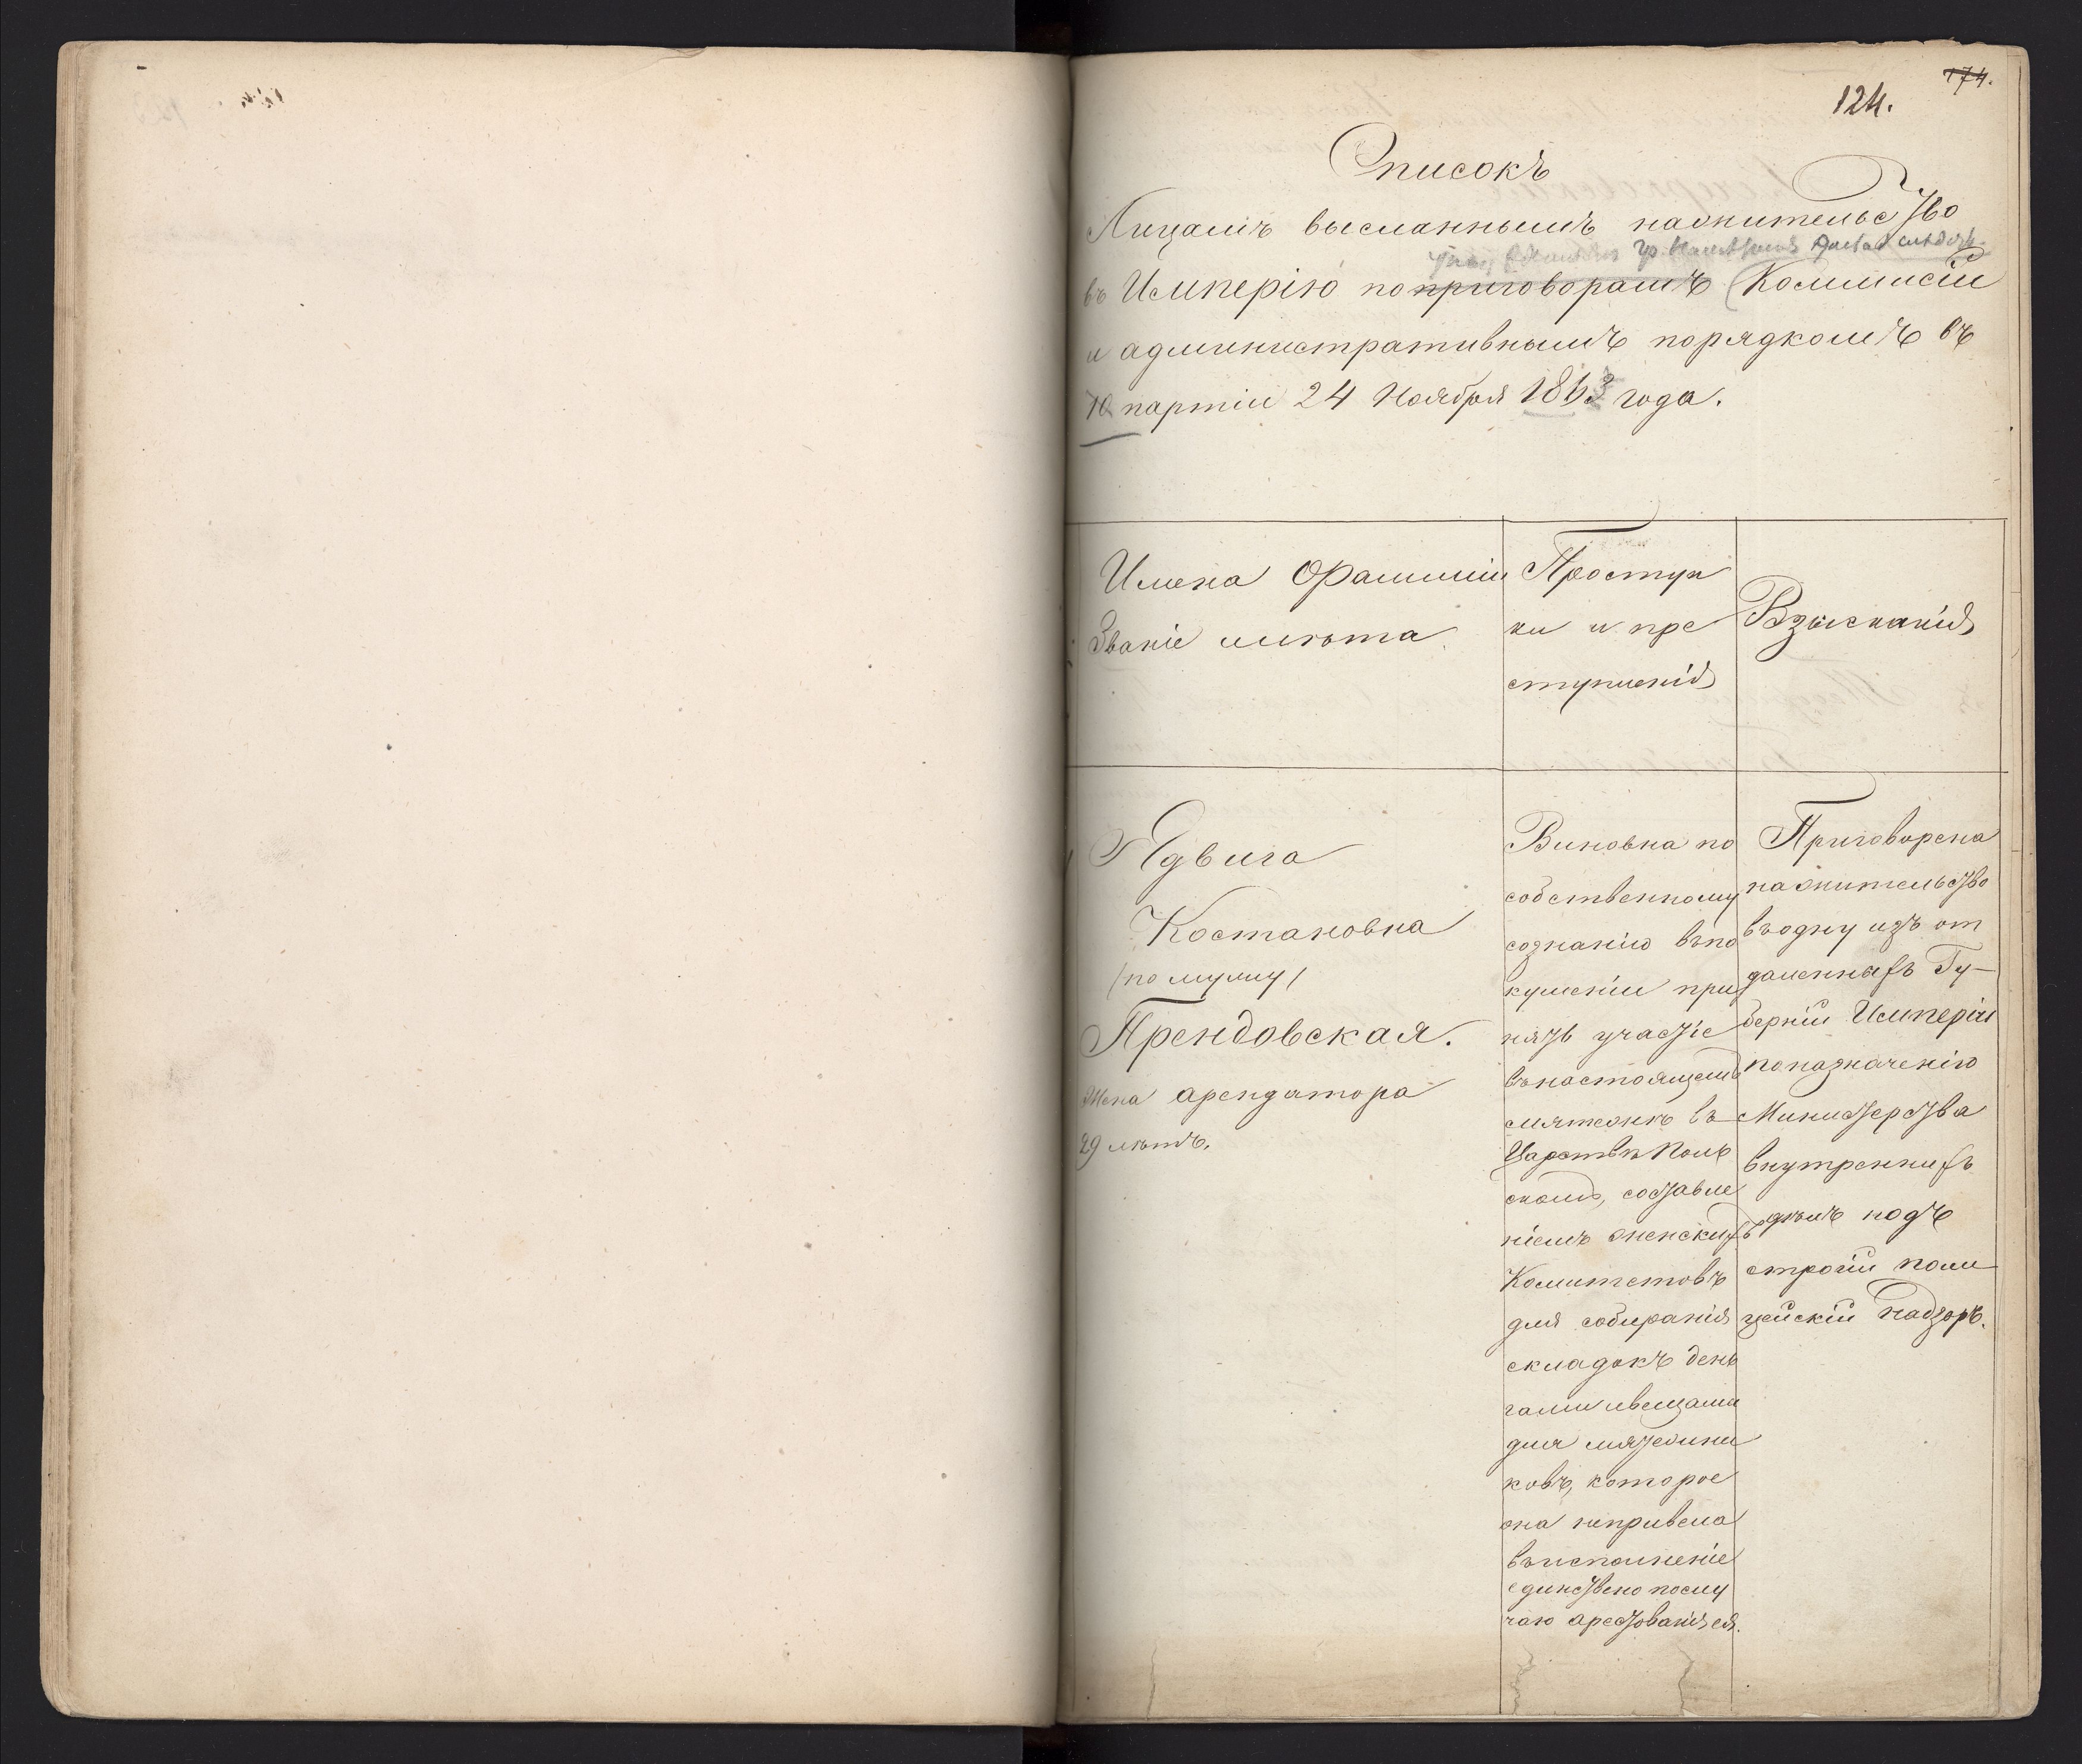 174.
124.
Списокъ
Лицамъ высланнымъ на жительство
въ Имперію по приговорамъ Коммисіи
и административнымъ порядкомъ въ
10 партіи 24 Ноября 1863 года.
Имена Фамиліи
Званіе и лѣта
Проступ
ки и пре
ступленія
Взысканія
Ядвига
Костановна
(по мужу)
Прендовская.
Жена арендатора
29 лѣтъ.
Виновна по
собственному
сознанію въ по
кушеніи при
нять участіе
въ настоящемъ
мятежѣ въ
Царствѣ Поль
скомъ, составле
ніемъ женскихъ
Комитетовъ
для собиранія
складокъ день
гами и вещами
для мятежни
ковъ, которое
она непривела
въ исполненіе
единствено по слу
чаю арестованія ея.
Приговорена
на жительство
въ одну изъ от
даленныхъ Гу-
берній Имперіи
по назначенію
Министерства
внутреннихъ
дѣлъ подъ
строгій поли
цейскій надзоръ.